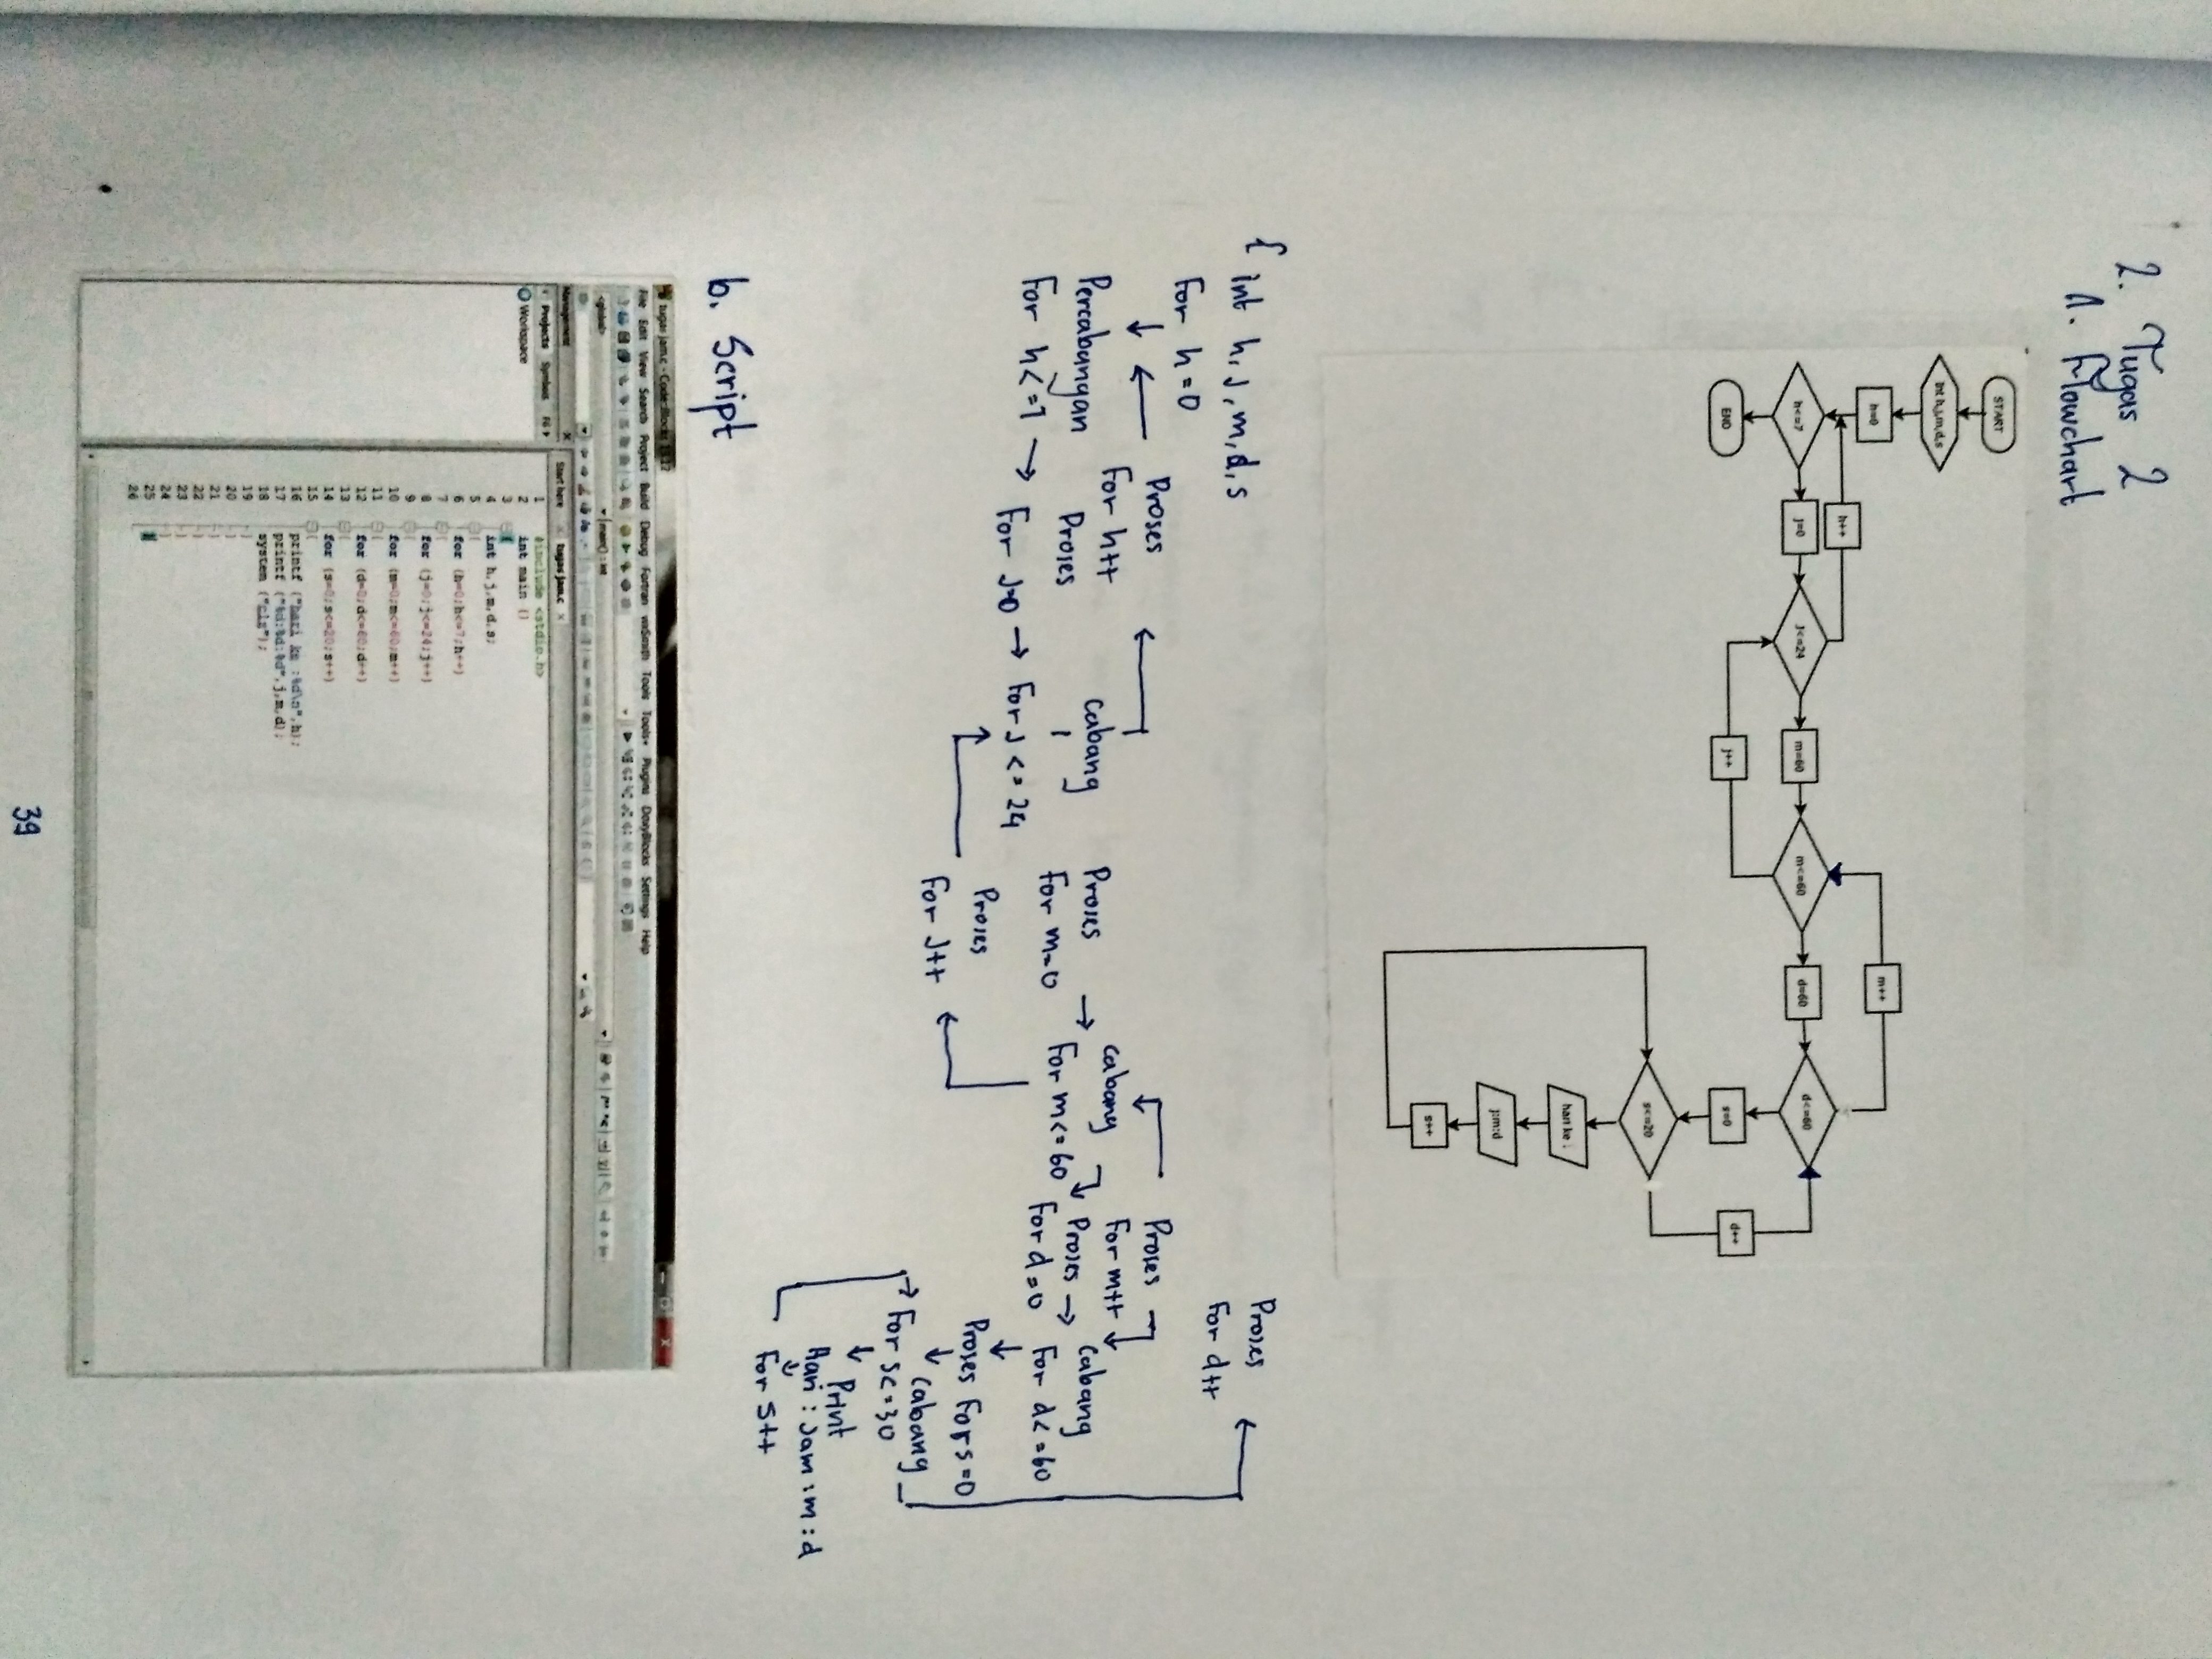 2. Tugas 2
A. Flowchart
START
int h,j,m,d,s
h=0
h++
h<=7
j=0
j<=24
m=60
m<=60
d=60
d<=60
m++
END
j++
s=0
d++
s<=20
hari ke :
j:m:d
s++
{ int h, j, m, d, s
Proses
For d++
For h=0
Proses
For h++
Proses
For m++
Percabangan
For h<=7
Proses
For J=0
Cabang
For J <= 24
Proses
For m=0
Cabang
For m<=60
Proses
For d=0
Cabang
For d<=60
Proses
For J++
Proses For s=0
Cabang
For s<=30
Print
Hari : Jam : m : d
For s++
b. Script
tugas jam.c - Code::Blocks
File Edit View Search Project Build Debug Fortran wxSmith Tools Tools+ Plugins DoxyBlocks Settings Help
<global>
main() : int
Management
Projects Symbols
Workspace
Start here
tugas jam.c
1 #include <stdio.h>
2 int main ()
3 {
4 int h,j,m,d,s;
5 {
6 for (h=0;h<=7;h++)
7 {
8 for (j=0;j<=24;j++)
9 {
10 for (m=0;m<=60;m++)
11 {
12 for (d=0;d<=60;d++)
13 {
14 for (s=0;s<=20;s++)
15 {
16 printf ("hari ke :%d\n",h);
17 printf ("%d:%d:%d",j,m,d);
18 system ("cls");
19 }
20 }
21 }
22 }
23 }
24 }
25 }
26
39